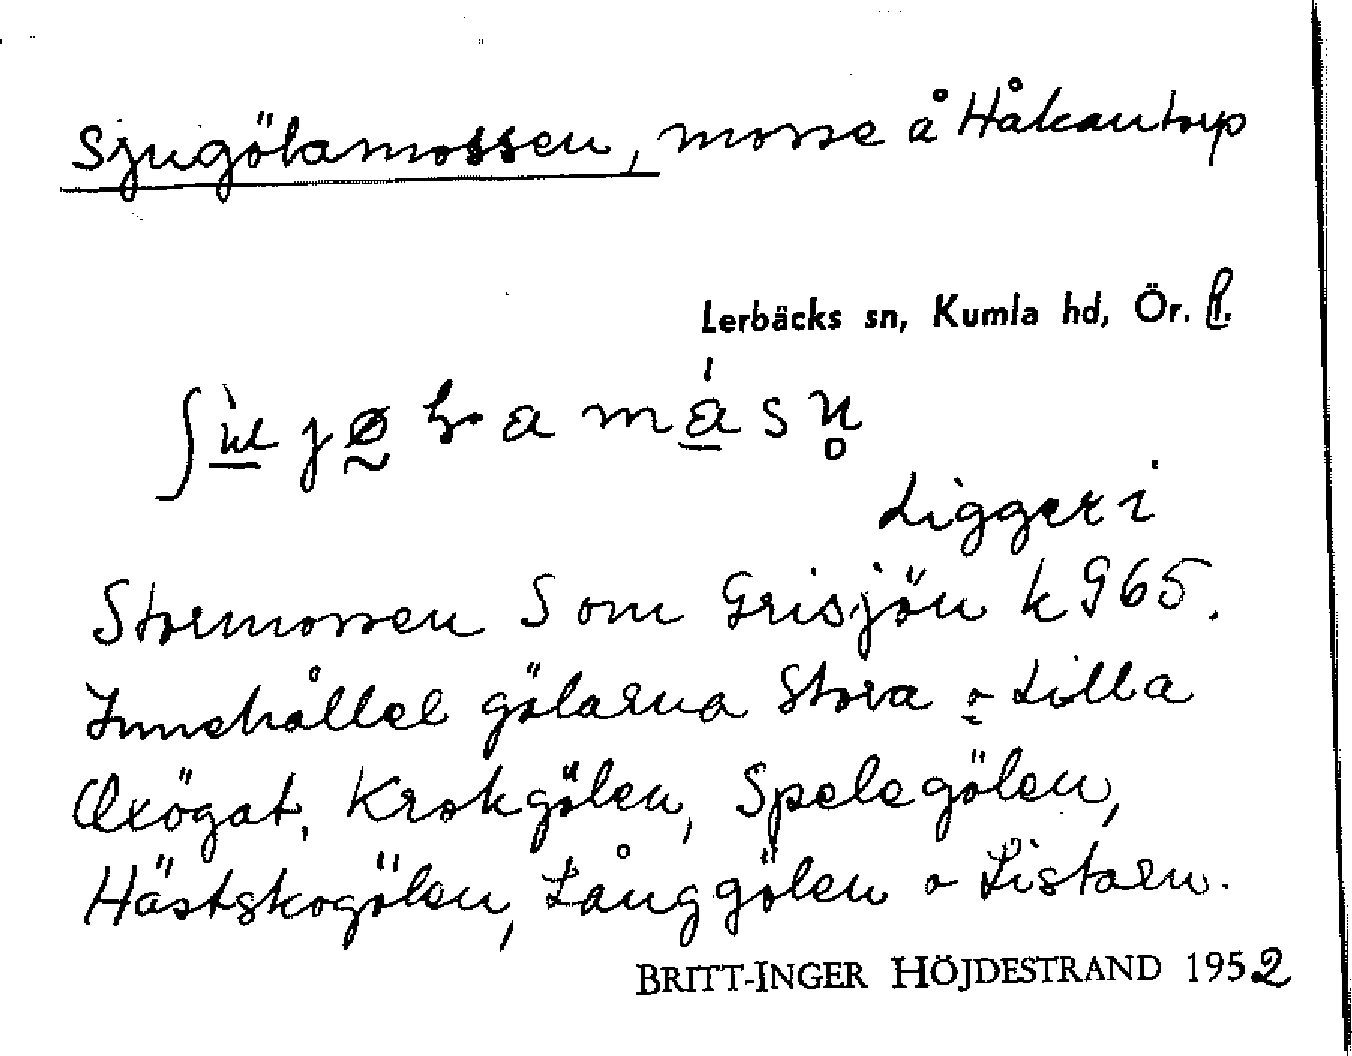 Sjugölamossen, mosse å Håkantorp
Lerbäcks sn, Kumla hd, Ör. l.
Ligger i
Stormossen S om Grisjön k 965.
Innehåller gölarna Stora o Lilla
Oxögat, Krokgölen, Spelegölen,
Hästskogölen, Långgölen o Listarn.
BRITT-INGER HÖJDESTRAND 1952